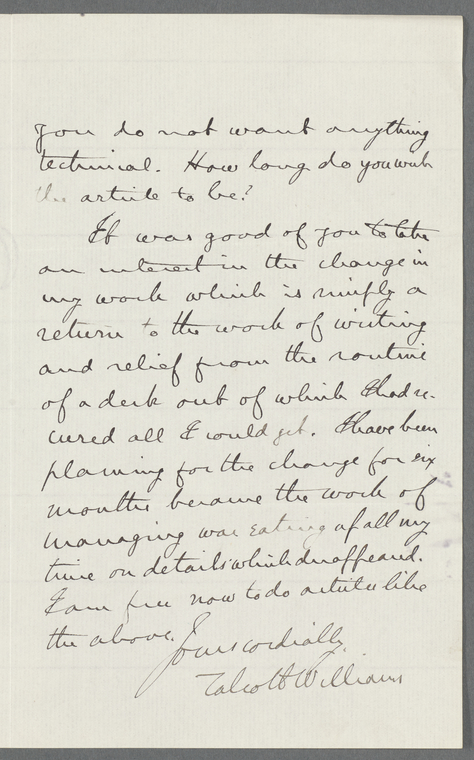 you do not want anything
technical. How long do you wish
the article to be?
It was good of you to take
an interest in the change in
my work which is simply a
return to the work of writing
and relief from the routine
of a desk out of which I had re-
cured all I could get. I have been
planning for the change for six
months because the work of
managing was eating up all my
time on details which disappeared.
I am free now to do articles like
the above.
Yours cordially,
Talcott Williams